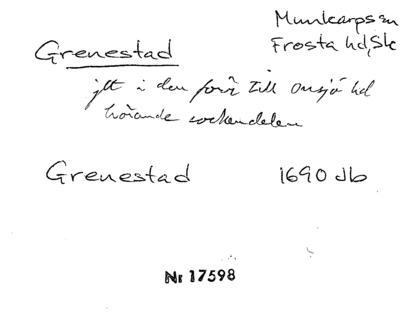 Munkarps sn
Frosta hd, Sk
Grenestad
jtt i den förr till Onsjö hd
hörande sockendelen
Grenestad 1690 Jb
Nr 17598